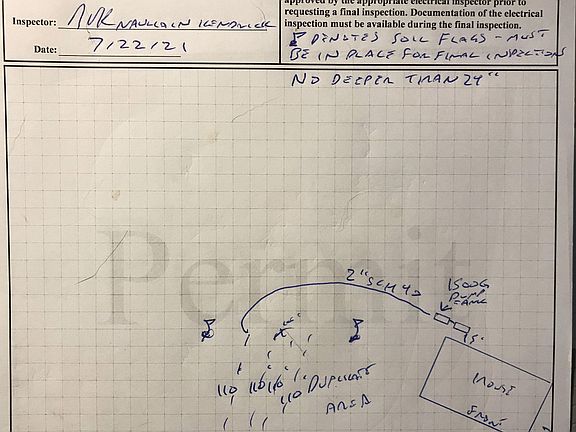 approved by the appropriate electrical inspector prior to
requesting a final inspection. Documentation of the electrical
inspection must be available during the final inspection.
Inspector:
Date: 7/22/21
DENOTES SOIL FLAGS - MUST
BE IN PLACE FOR FINAL INSPECTIONS
NO DEEPER THAN 24"
Permit
2" SCH 40
1500G
PUMP
TANK
15'
HOUSE
FRONT
110 110 110 DUPLICATE
110 AREA